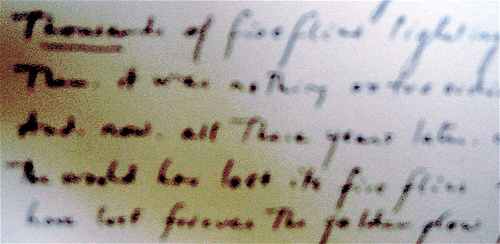 Thousands of fireflies lighting
Then it was nothing
And now all those years later
The world has lost its fire flies
have lost forever the golden glow